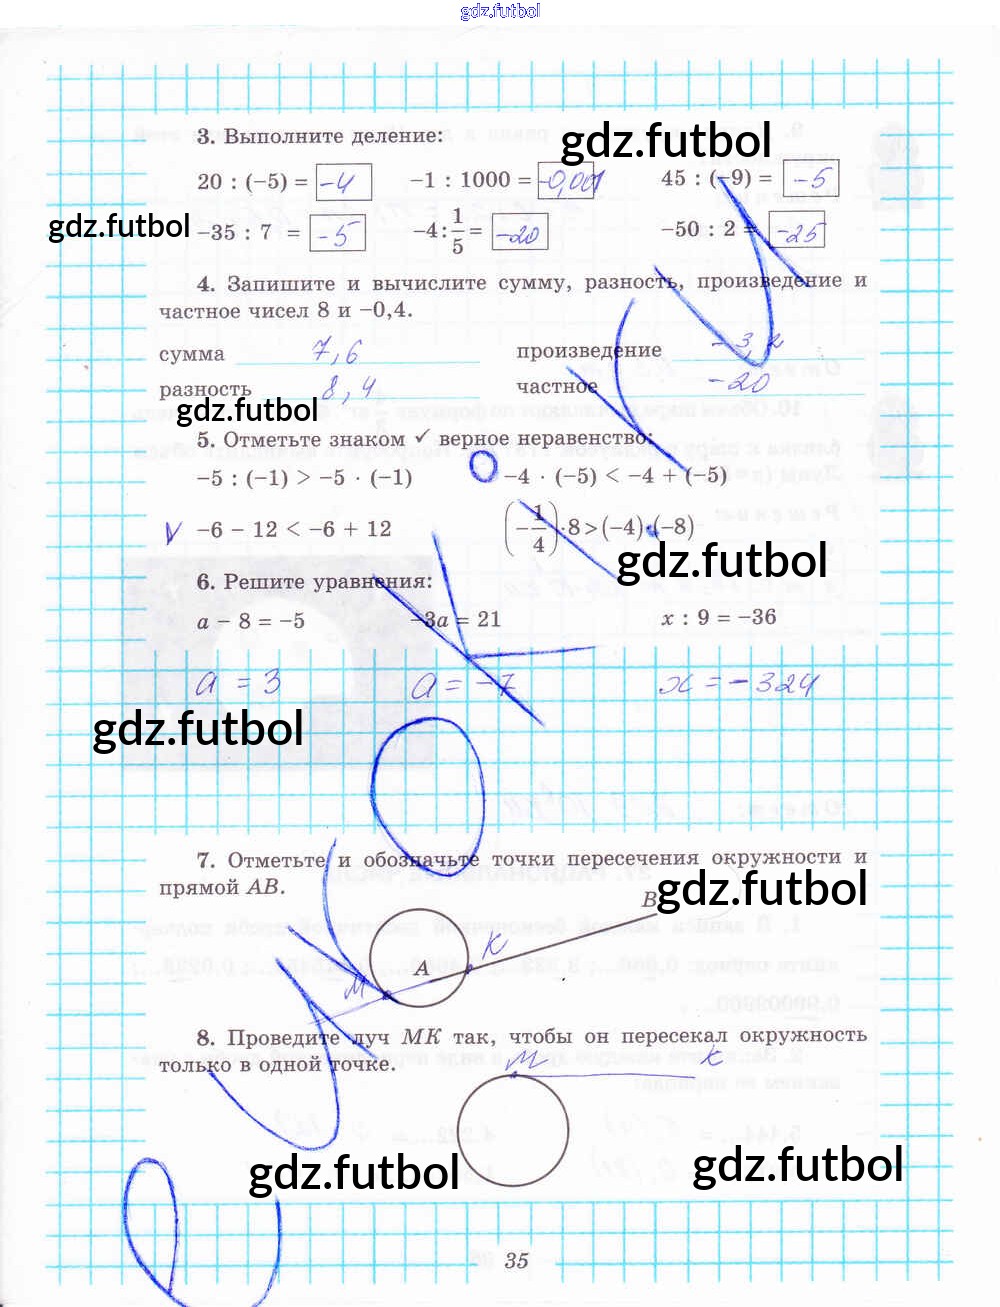 gdz.futbol
3. Выполните деление:
gdz.futbol
20 : (−5) = −4 −1 : 1000 = −0,001 45 : (−9) = −5
gdz.futbol
−35 : 7 = −5 −4 : 1/5 = −20 −50 : 2 = −25
4. Запишите и вычислите сумму, разность, произведение и
частное чисел 8 и −0,4.
сумма 7,6 произведение −3,2
разность 8,4 частное −20
gdz.futbol
5. Отметьте знаком ✓ верное неравенство:
−5 : (−1) > −5 · (−1) −4 · (−5) < −4 + (−5)
V −6 − 12 < −6 + 12 (−1/4) · 8 > (−4) · (−8)
gdz.futbol
6. Решите уравнения:
a − 8 = −5 −3a = 21 x : 9 = −36
a = 3 a = −7 x = −324
gdz.futbol
7. Отметьте и обозначьте точки пересечения окружности и
прямой AB.
gdz.futbol
B
K
A
M
8. Проведите луч MK так, чтобы он пересекал окружность
только в одной точке.
M K
gdz.futbol
gdz.futbol
35